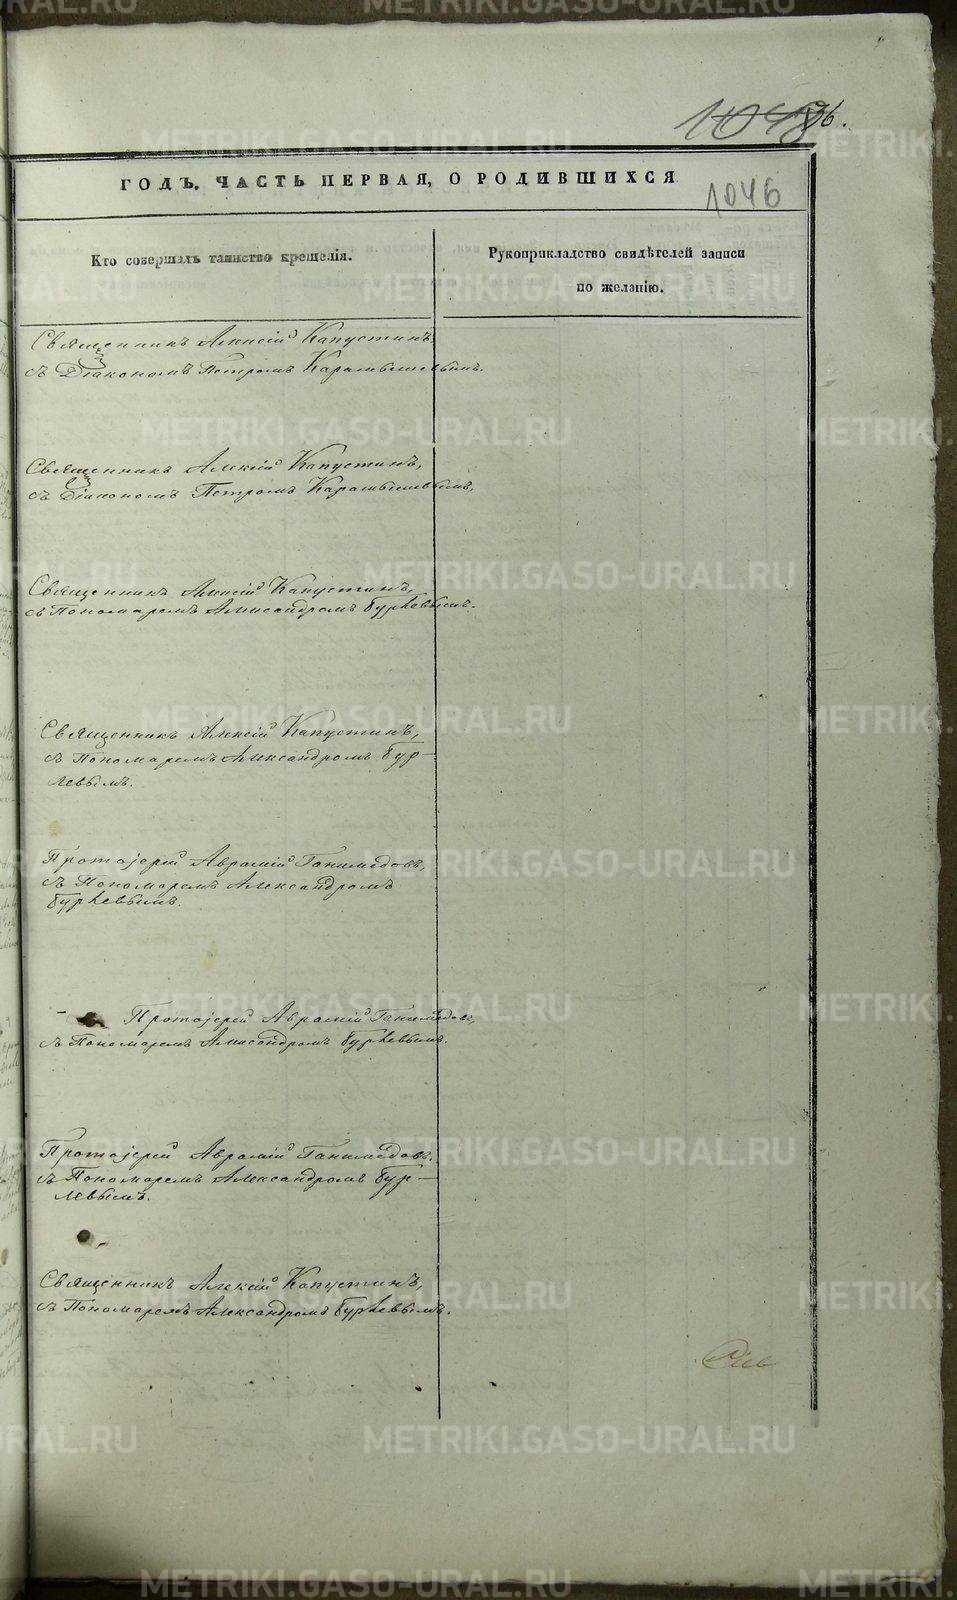 36.
ГОДЪ. ЧАСТЬ ПЕРВАЯ, О РОДИВШИХСЯ
1046
Кто совершалъ таинство крещенія.
Рукоприкладство свидѣтелей записи
по желанію.
Священникъ Алексій Капустинъ
съ Діакономъ Петромъ Карамышевымъ.
Священникъ Алексій Капустинъ,
съ Діакономъ Петромъ Карамышевымъ,
Священникъ Алексій Капустинъ,
съ Пономаремъ Александромъ Бурлевымъ.
Священникъ Алексій Капустинъ,
съ Пономаремъ Александромъ Бур-
левымъ.
Протоіерей Аврамій Ганимедовъ,
съ Пономаремъ Александромъ
Бурлевымъ.
Протоіерей Аврамій Ганимедовъ,
съ Пономаремъ Александромъ Бурлевымъ.
Протоіерей Аврамій Ганимедовъ.
съ Пономаремъ Александромъ Бур-
левымъ.
Священникъ Алексій Капустинъ,
съ Пономаремъ Александромъ Бурлевымъ.
METRIKI.GASO-URAL.RU